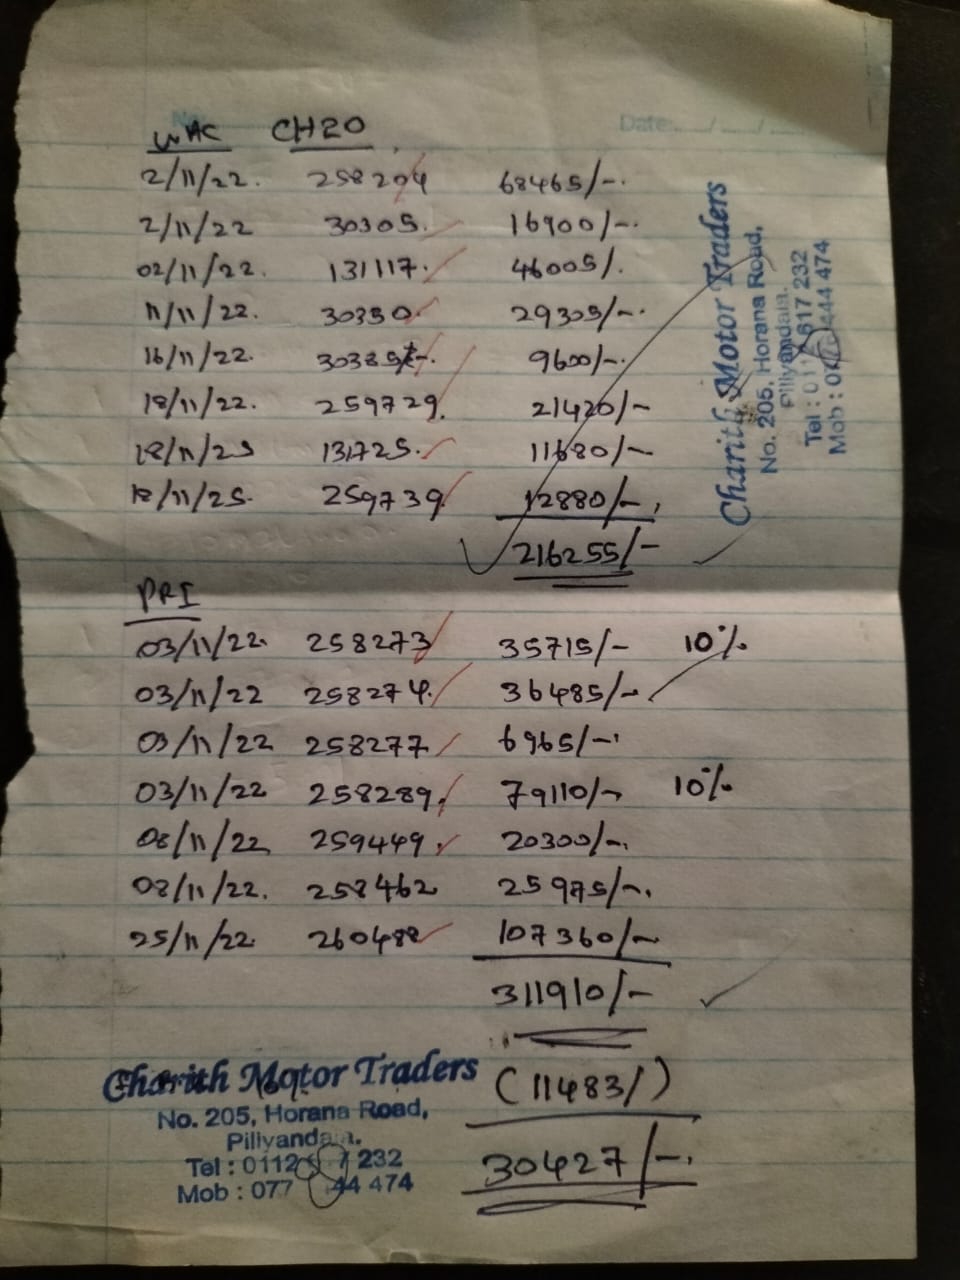 No. Date: / /
WAC CH20
2/11/22. 258204 68465/-
2/11/22 30305. 16900/-
02/11/22. 131117. 46005/.
11/11/22. 30350 29305/-
16/11/22. 30385 9600/-
18/11/22. 259729. 21420/-
18/11/25 131725. 11680/-
18/11/25. 259739 12880/-
216255/-
Charith Motor Traders
No. 205, Horana Road,
Piliyandala.
Tel : 011 617 232
Mob : 07 444 474
PRI
03/11/22. 258273 35715/- 10%
03/11/22 258274. 36485/-
03/11/22 258277 6965/-
03/11/22 258289. 79110/- 10%
08/11/22 259449. 20300/-
08/11/22. 258462 25975/-
25/11/22 260488 107360/-
311910/-
(11483/)
30427/-
Charith Motor Traders
No. 205, Horana Road,
Piliyandala.
Tel : 0112 7 232
Mob : 077 44 474